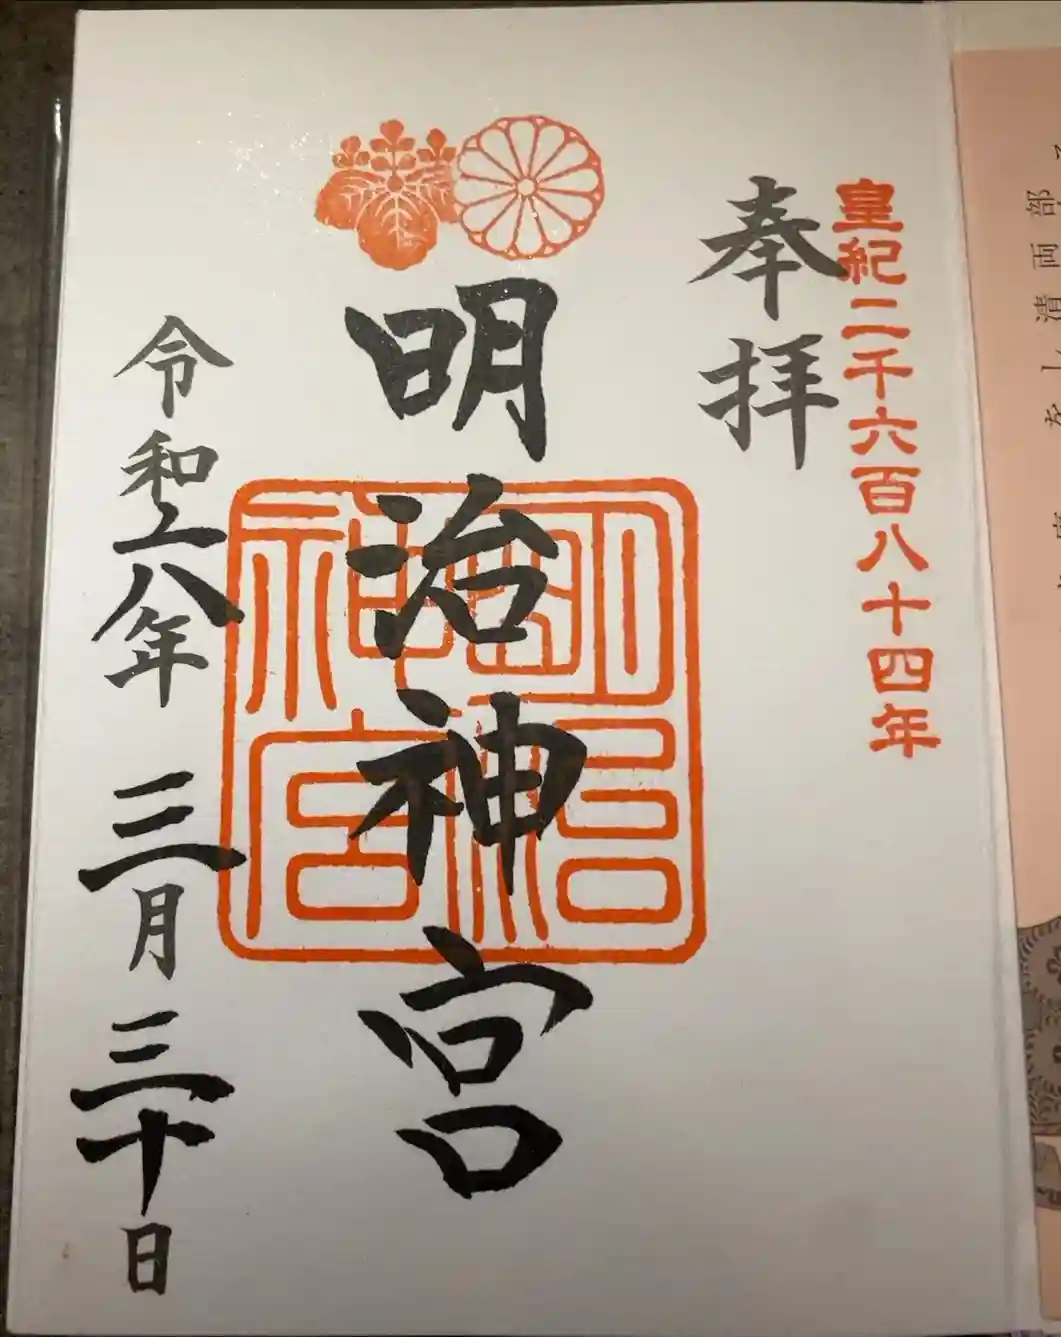 皇紀二千六百八十四年
奉拝
明治神宮
明治
神宮
令和六年三月三十日